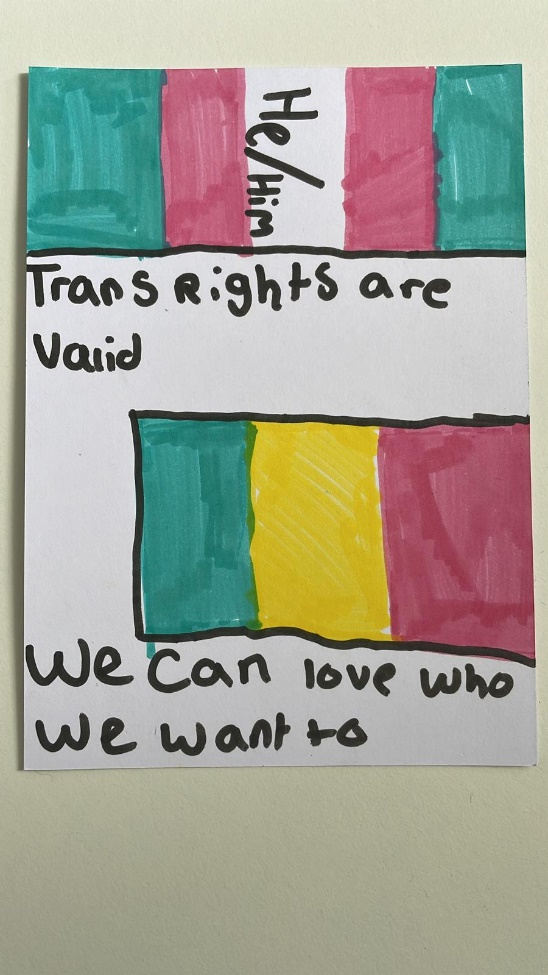 He/Him
Trans Rights are
Valid
We can love who
We want to